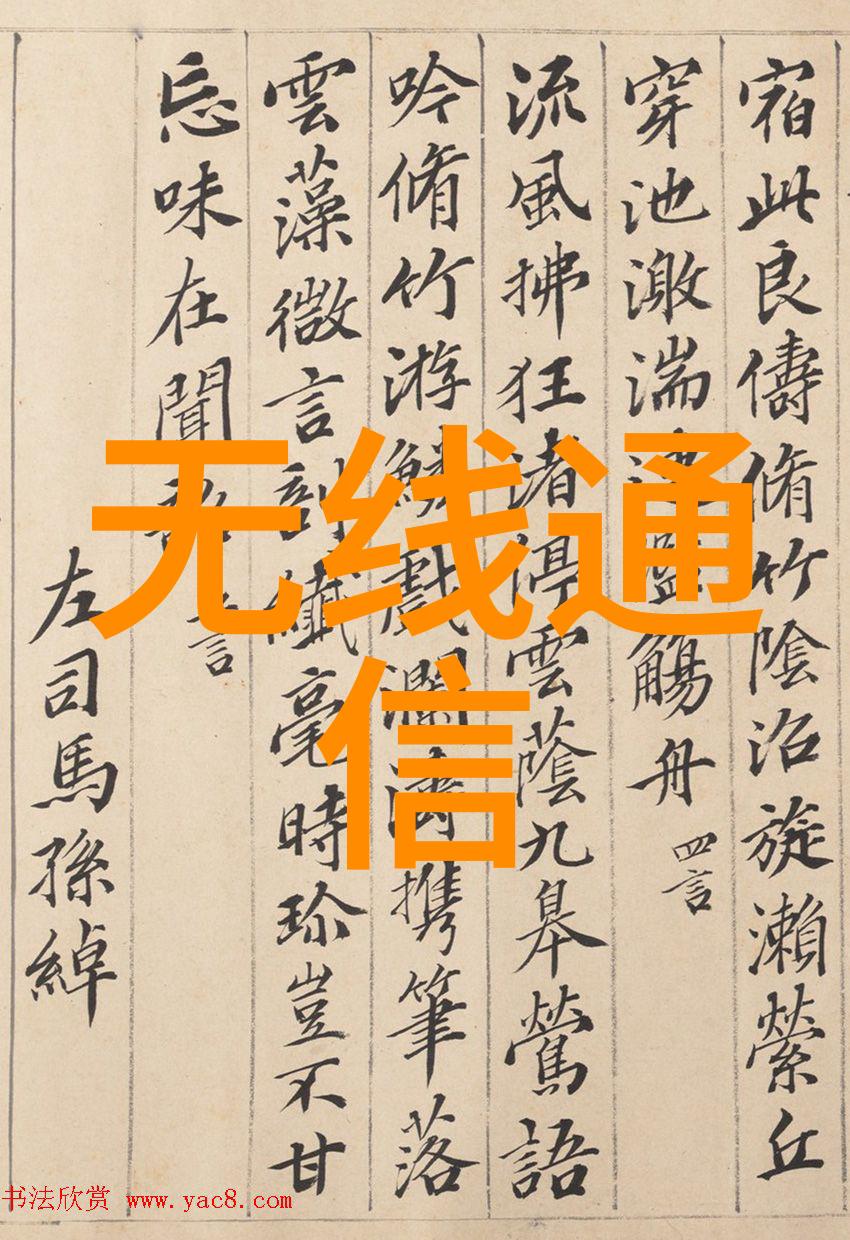 宿此良儔脩竹陰沼旋瀨縈丘
穿池激湍連濫觴舟 四言
流風拂狂渚渟雲蔭九皋鶯語
吟脩竹游鱗戲瀾濤携筆落
雲藻微言剖纖毫時珎豈不甘
忘味在聞韶 言
左司馬孫綽
无线通
信
书法欣赏 www.yac8.com